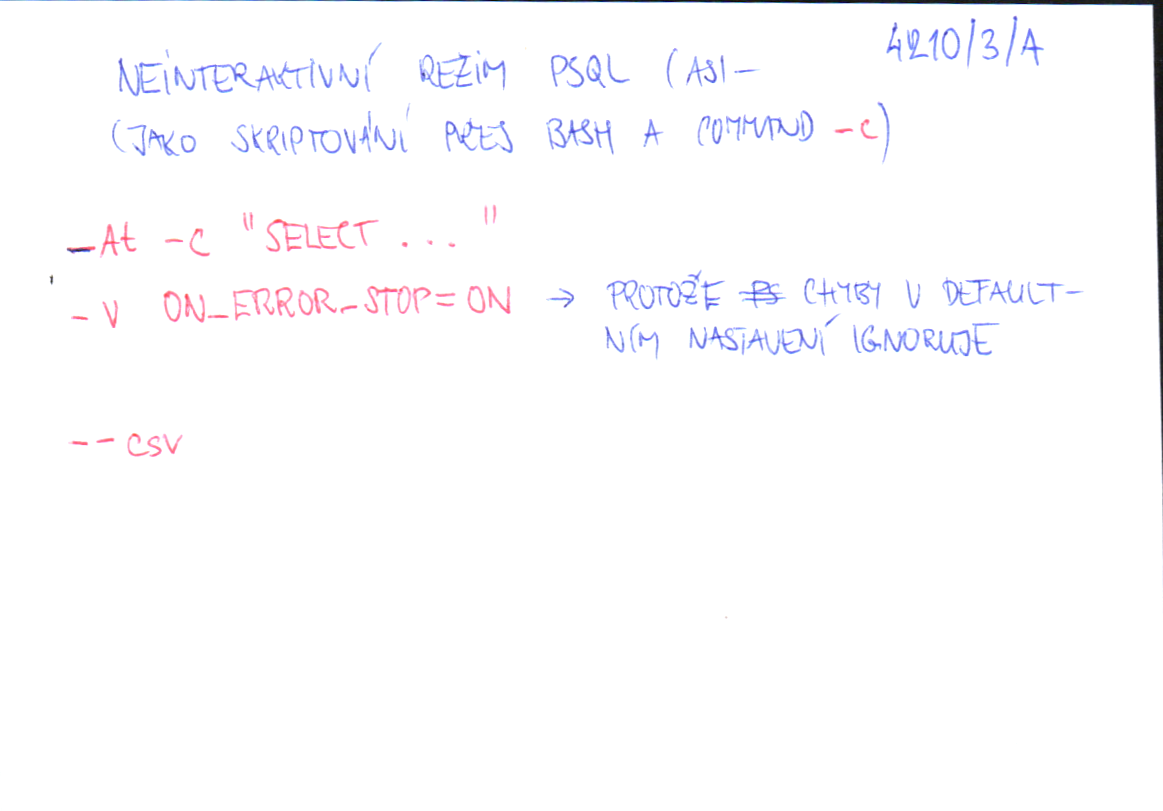 4210/3/A
NEINTERAKTIVNÍ REŽIM PSQL (ASI –
(JAKO SKRIPTOVÁNÍ PŘES BASH A COMMAND -c)
-At -c "SELECT ... "
-v ON_ERROR_STOP=ON → PROTOŽE CHYBY V DEFAULT-
NÍM NASTAVENÍ IGNORUJE
--csv